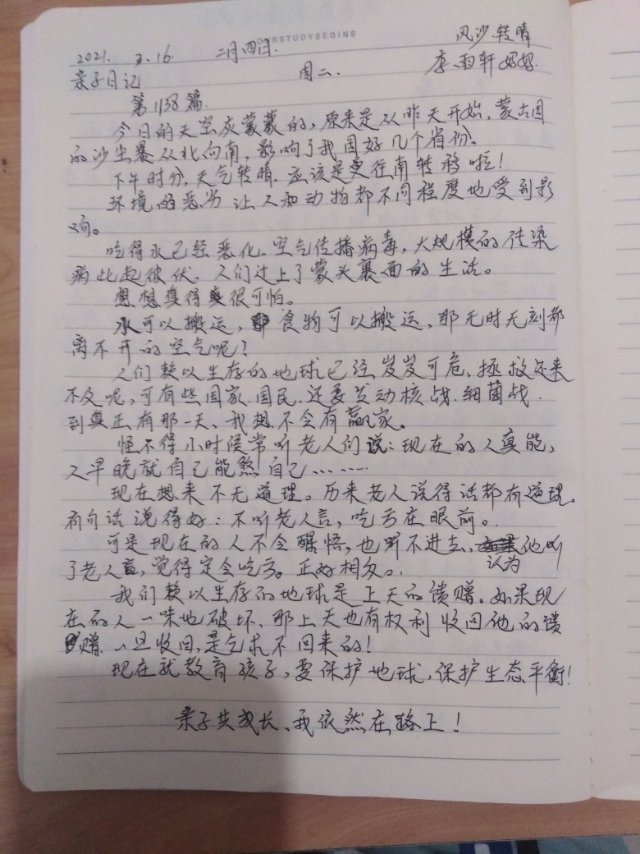 OURSTUDYBEGINS
2021. 3.16 二月四日. 风沙.转晴
亲子日记 周二. 李雨轩妈妈
第1158篇.
今日的天空灰蒙蒙的,原来是从昨天开始,蒙古国
的沙尘暴从北向南,影响了我国好几个省份。
下午时分,天气转晴.应该是更往南转移啦!
环境的恶劣让人和动物都不同程度地受到影
响。
吃得水已经恶化.空气传播病毒,大规模的传染
病此起彼伏.人们过上了蒙头裹面的生活。
想想真得很可怕。
水可以搬运,食物可以搬运,那无时无刻都
离不开的空气呢?
人们赖以生存的地球已经岌岌可危,拯救还来
不及呢,可有些国家.国民.还要发动核战.细菌战.
到真正有那一天、我想不会有赢家。
怪不得小时候常听老人们说:现在的人真能,
人早晚就自己能熬自己……
现在想来不无道理。历来老人说得话都有道理。
有句话说得好:不听老人言,吃亏在眼前。
可是现在的人不会醒悟,也听不进去,认为他听
了老人言,觉得定会吃亏。正好相反。
我们赖以生存的地球是上天的馈赠.如果现
在的人一味地破坏.那上天也有权利收回他的馈
赠.一旦收回,是乞求不回来的!
现在就教育孩子,要保护地球,保护生态平衡!
亲子共成长、我依然在路上!